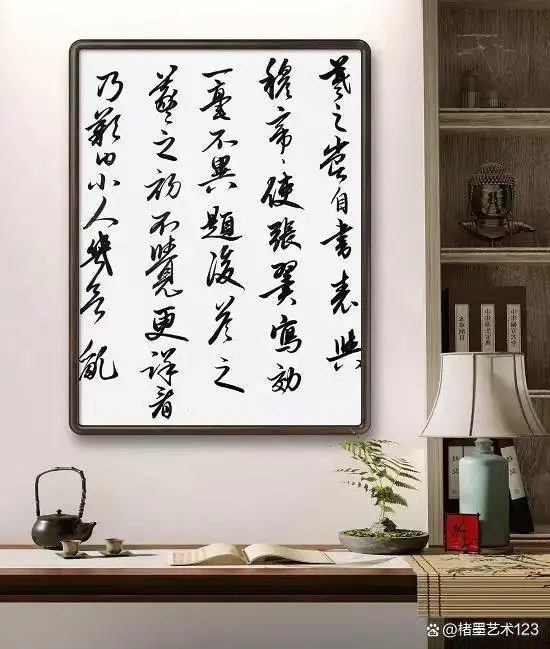 羲之嘗自書表與
穆帝〻使張翼寫効
一毫不異題後答之
羲之初不覺更詳看
乃歎曰小人幾欲亂
@楮墨艺术123